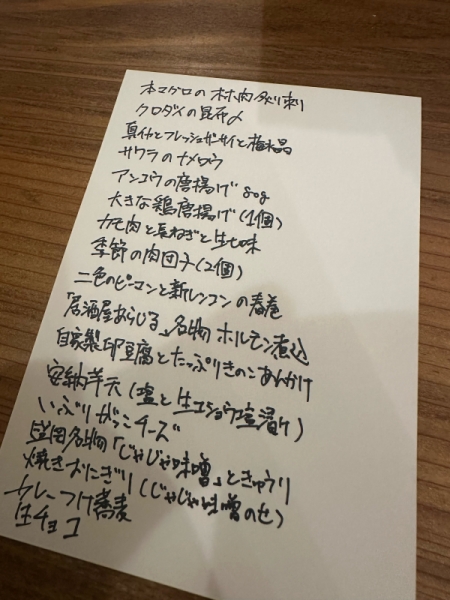 本マグロの木木肉炙り刺
クロダイの昆布〆
真イカとフレッシュザーサイと梅水晶
サワラのナメロウ
アンコウの唐揚げ 80g
大きな鶏唐揚げ(1個)
カモ肉と長ねぎと生七味
季節の肉団子(2個)
二色のピーマンと新レンコンの春巻
「居酒屋あらじる」名物 ホルモン煮込
自家製卵豆腐とたっぷりきのこあんかけ
安納芋天(塩と生コショウ塩漬け)
いぶりがっこチーズ
盛岡名物「じゃじゃ味噌」ときゅうり
焼きおにぎり(じゃじゃ味噌のせ)
カレーつけ蕎麦
生チョコ